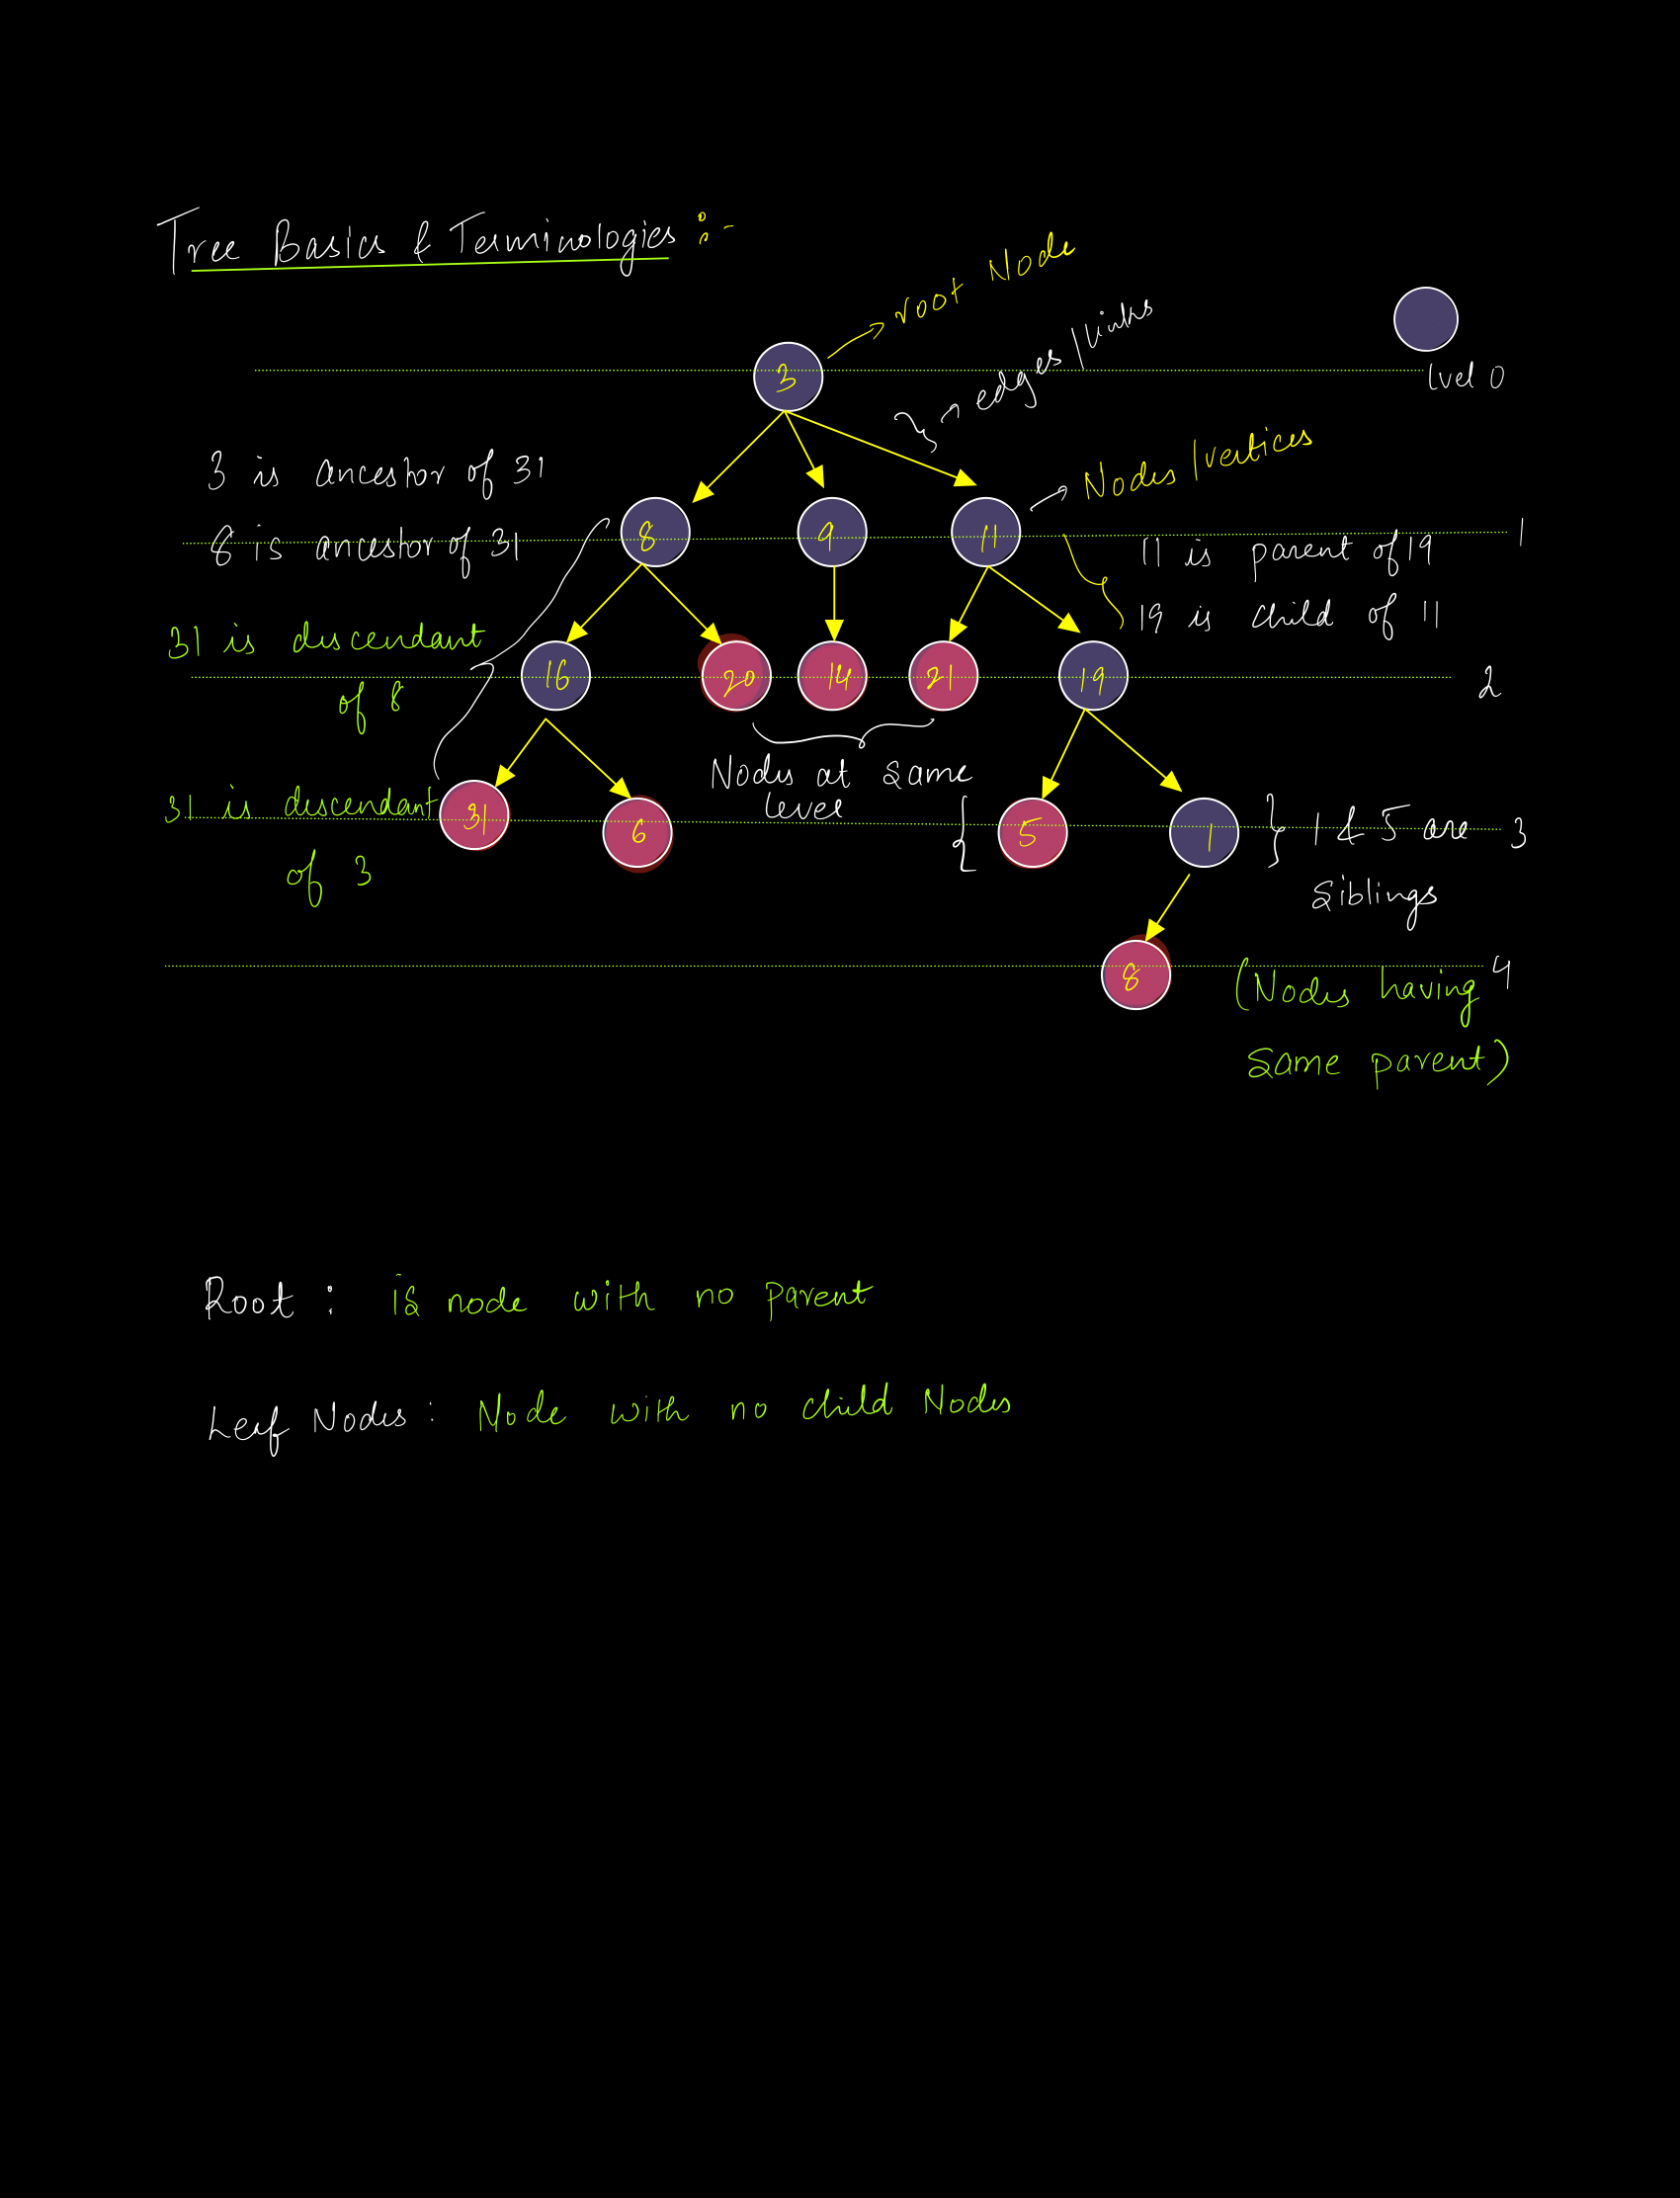 Tree Basics & Terminologies :-
root Node
edges/links
3
lvel 0
3 is ancestor of 31
Nodes/vertices
8 is ancestor of 31
8 9 11
1
11 is parent of 19
19 is child of 11
31 is descendant
of 8
16 20 14 21 19
2
Nodes at same
level
31 is descendant
of 3
31 6 5 1
1 & 5 are
3
siblings
8
4
(Nodes having
same parent)
Root : is node with no parent
Leaf Nodes : Node with no child Nodes